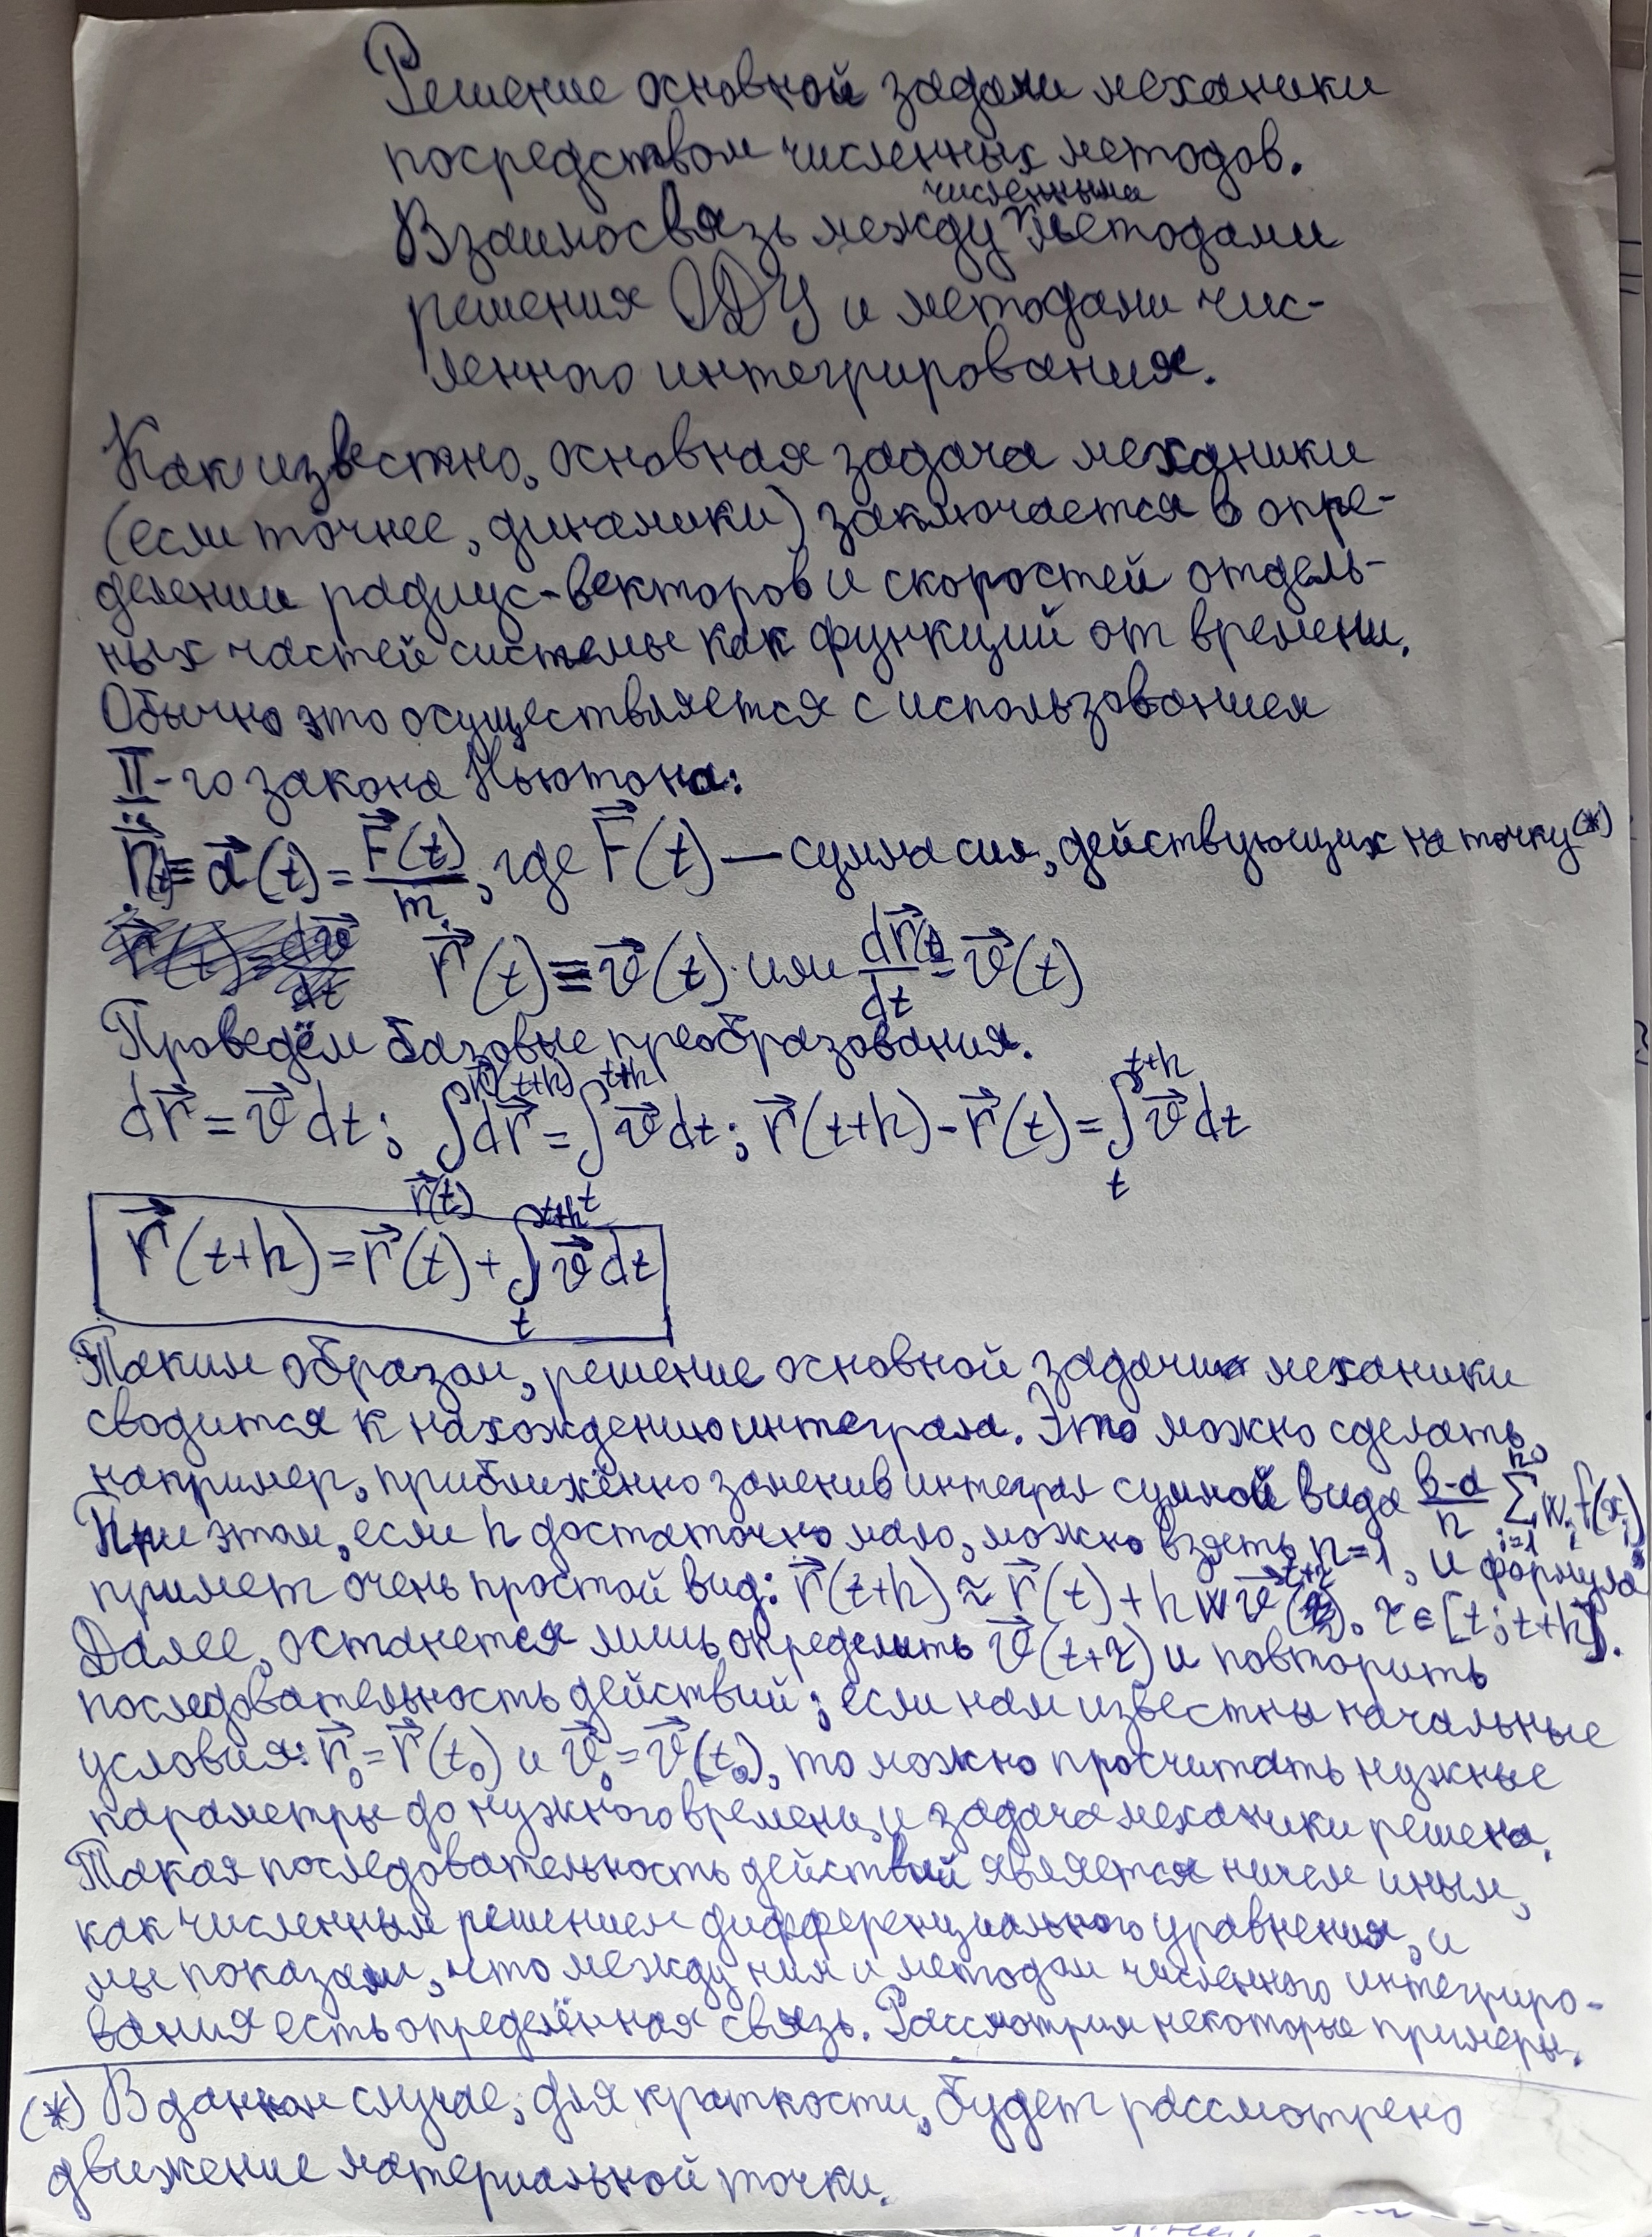 Решение основной задачи механики
посредством численных методов.
численными
Взаимосвязь между методами
решения ОДУ и методами чис-
ленного интегрирования.
Как известно, основная задача механики
(если точнее, динамики) заключается в опре-
делении радиус-векторов и скоростей отдель-
ных частей системы как функций от времени.
Обычно это осуществляется с использованием
II-го закона Ньютона:
r̈⃗(t)≡a⃗(t)=F⃗(t)/m, где F⃗(t) — сумма сил, действующих на точку(*)
ṙ⃗(t)≡v⃗(t) или dr⃗(t)/dt=v⃗(t)
Проведём базовые преобразования.
dr⃗=v⃗dt; ∫_{r⃗(t)}^{r⃗(t+h)} dr⃗=∫_t^{t+h} v⃗dt; r⃗(t+h)-r⃗(t)=∫_t^{t+h} v⃗dt
r⃗(t+h)=r⃗(t)+∫_t^{t+h} v⃗dt
Таким образом, решение основной задачи механики
сводится к нахождению интеграла. Это можно сделать,
например, приближённо заменив интеграл суммой вида (b-a)/n ∑_{i=1}^{n} w_i f(x_i)
При этом, если h достаточно мало, можно взять n=1, и формула
примет очень простой вид: r⃗(t+h)≈r⃗(t)+hwv⃗(t+τ). τ∈[t;t+h].
Далее, останется лишь определить v⃗(t+τ) и повторить
последовательность действий; если нам известны начальные
условия: r⃗₀=r⃗(t₀) и v⃗₀=v⃗(t₀), то можно просчитать нужные
параметры до нужного времени, и задача механики решена.
Такая последовательность действий является ничем иным,
как численным решением дифференциального уравнения, и
мы показали, что между ним и методом численного интегриро-
вания есть определённая связь. Рассмотрим некоторые примеры.
(*) В данном случае, для краткости, будет рассмотрено
движение материальной точки.